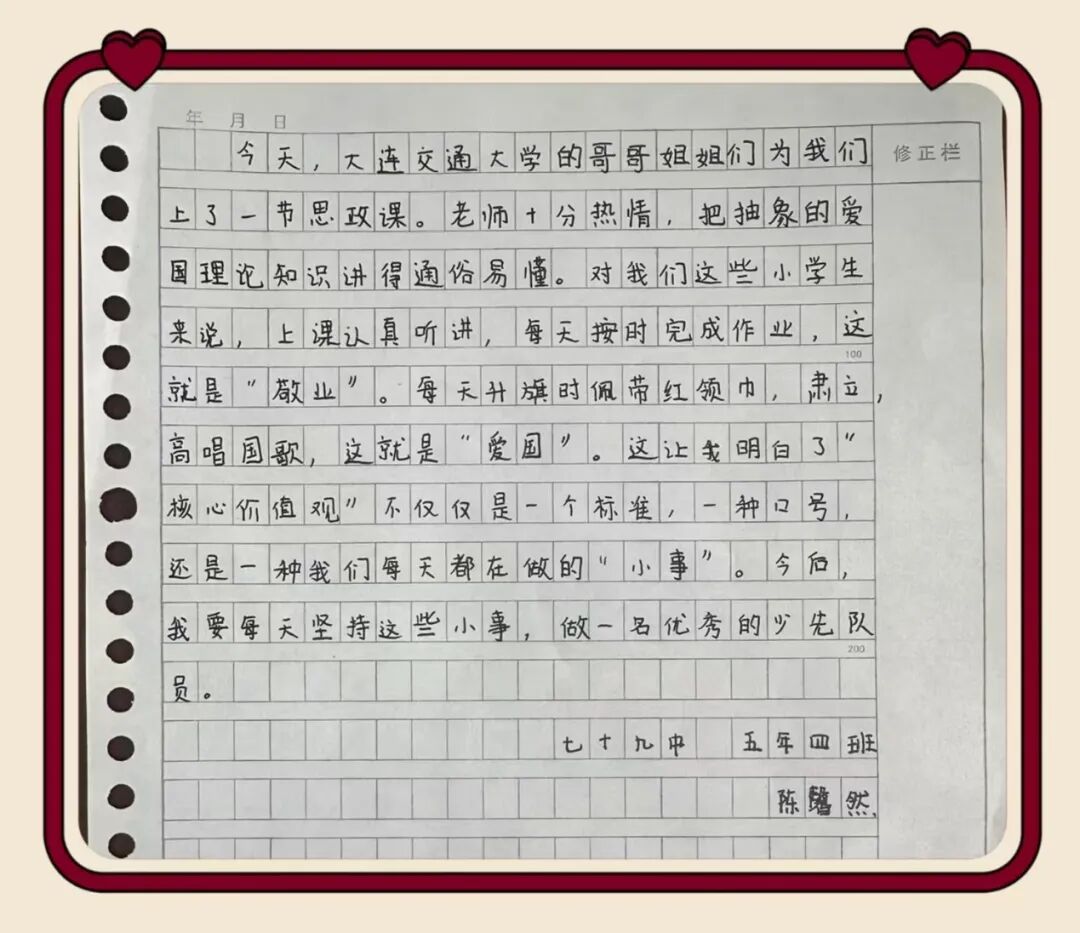 年 月 日
今天，大连交通大学的哥哥姐姐们为我们
修正栏
上了一节思政课。老师十分热情，把抽象的爱
国理论知识讲得通俗易懂。对我们这些小学生
来说，上课认真听讲，每天按时完成作业，这
100
就是“敬业”。每天升旗时佩带红领巾，肃立，
高唱国歌，这就是“爱国”。这让我明白了“
核心价值观”不仅仅是一个标准，一种口号，
还是一种我们每天都在做的“小事”。今后，
我要每天坚持这些小事，做一名优秀的少先队
200
员。
七十九中 五年四班
陈馨然